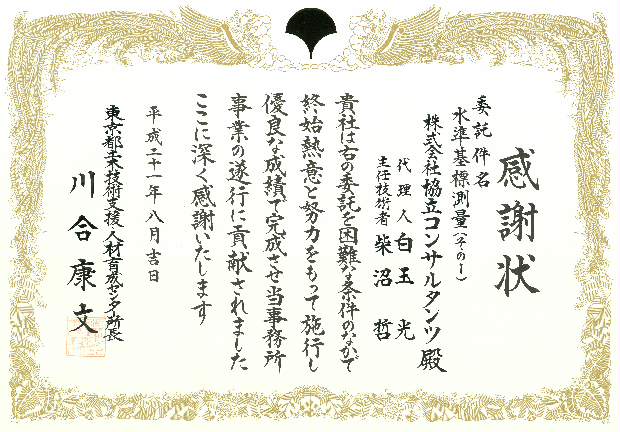 感謝状
委託件名
水準基標測量(その1)
株式会社協立コンサルタンツ殿
代理人 白玉 光
主任技術者 柴沼 哲
貴社は右の委託を困難な条件のなかで
終始熱意と努力をもって施行し
優良な成績で完成させ当事務所
事業の遂行に貢献されました
ここに深く感謝いたします
平成二十一年八月吉日
東京都土木技術支援・人材育成センター所長
川合康文